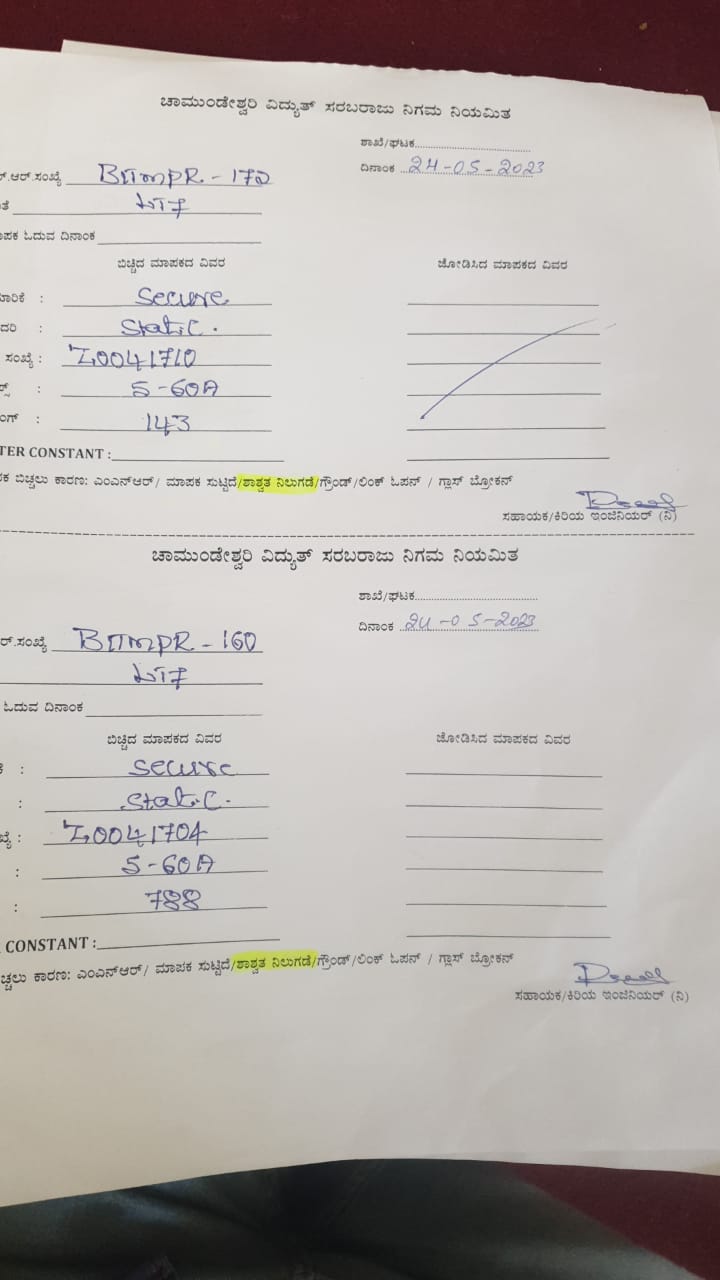 ಚಾಮುಂಡೇಶ್ವರಿ ವಿದ್ಯುತ್ ಸರಬರಾಜು ನಿಗಮ ನಿಯಮಿತ
ಶಾಖೆ/ಘಟಕ
ದಿನಾಂಕ 24-05-2023
ರ್.ಆರ್.ಸಂಖ್ಯೆ
ಾಪಕ ಓದುವ ದಿನಾಂಕ
ಬಿಚ್ಚಿದ ಮಾಪಕದ ವಿವರ ಜೋಡಿಸಿದ ಮಾಪಕದ ವಿವರ
secure
ದರಿ : Static.
ಸಂಖ್ಯೆ : 0041710
5-60A
143
TER CONSTANT :
ಕ ಬಿಚ್ಚಲು ಕಾರಣ: ಎಂಎನ್ಆರ್/ ಮಾಪಕ ಸುಟ್ಟಿದೆ/ಶಾಶ್ವತ ನಿಲುಗಡೆ/ಗ್ರೌಂಡ್/ಲಿಂಕ್ ಓಪನ್ / ಗ್ಲಾಸ್ ಬ್ರೋಕನ್
ಸಹಾಯಕ/ಕಿರಿಯ ಇಂಜಿನಿಯರ್ (ನಿ)
ಚಾಮುಂಡೇಶ್ವರಿ ವಿದ್ಯುತ್ ಸರಬರಾಜು ನಿಗಮ ನಿಯಮಿತ
ಶಾಖೆ/ಘಟಕ
ದಿನಾಂಕ 24-05-2023
ರ್.ಸಂಖ್ಯೆ
ಓದುವ ದಿನಾಂಕ
ಬಿಚ್ಚಿದ ಮಾಪಕದ ವಿವರ ಜೋಡಿಸಿದ ಮಾಪಕದ ವಿವರ
secure
: Static.
: 0041704
: 5-60A
: 788
CONSTANT :
ಚ್ಚಲು ಕಾರಣ: ಎಂಎನ್ಆರ್/ ಮಾಪಕ ಸುಟ್ಟಿದೆ/ಶಾಶ್ವತ ನಿಲುಗಡೆ/ಗ್ರೌಂಡ್/ಲಿಂಕ್ ಓಪನ್ / ಗ್ಲಾಸ್ ಬ್ರೋಕನ್
ಸಹಾಯಕ/ಕಿರಿಯ ಇಂಜಿನಿಯರ್ (ನಿ)